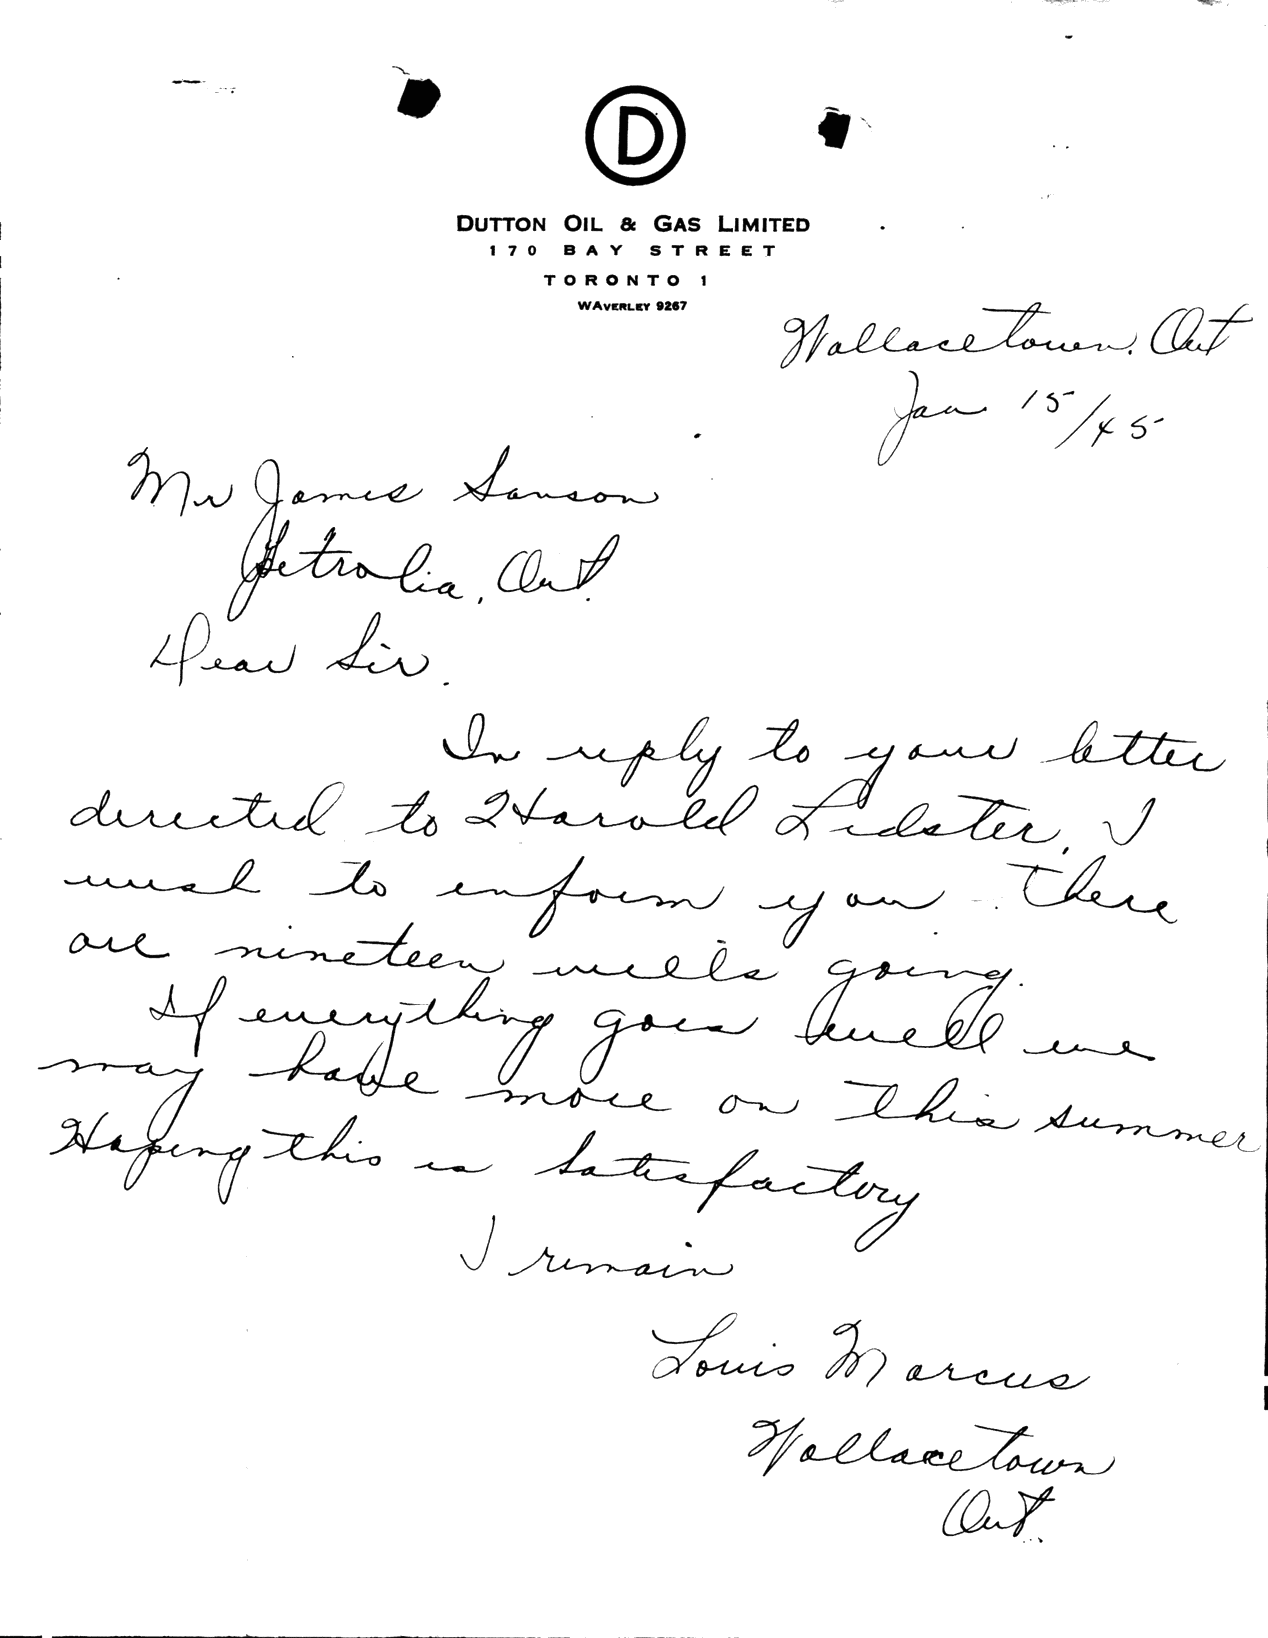 D
DUTTON OIL & GAS LIMITED
170 BAY STREET
TORONTO 1
WAVERLEY 9267
Wallacetown. Ont
Jan 15/45
Mr James Sanson
Petrolia, Ont.
Dear Sir.
In reply to your letter
directed to Harold Lidster, I
wish to inform you there
are nineteen wells going.
If everything goes well we
may have more on this summer
Hoping this is satisfactory
I remain
Louis Marcus
Wallacetown
Ont.